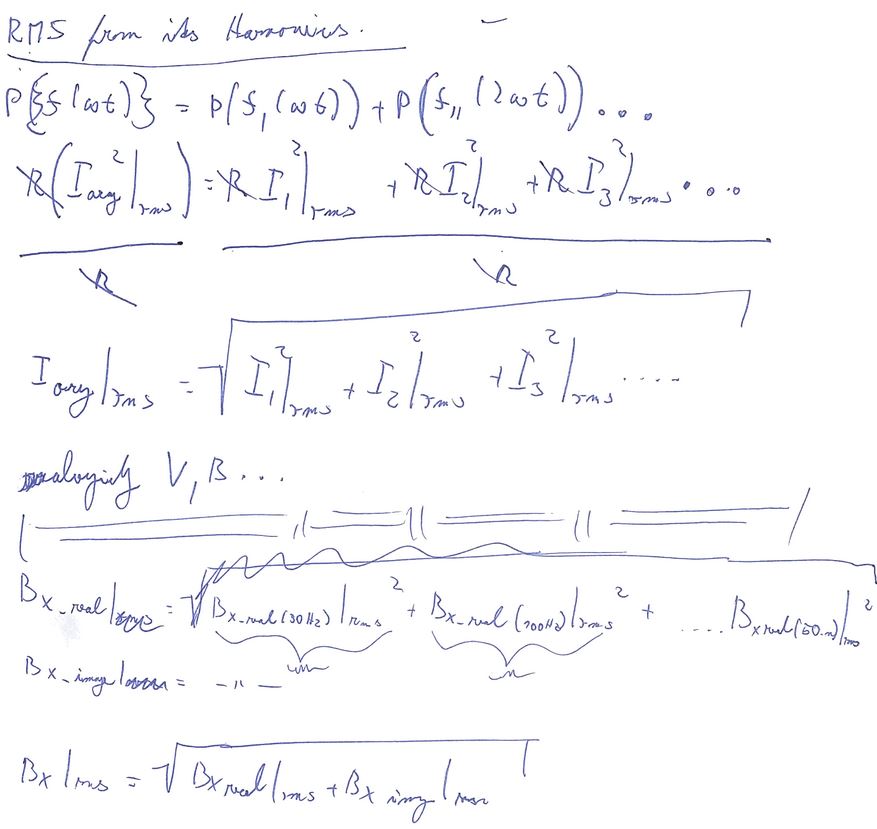 RMS from its Harmonics.
P{f(ωt)} = P(f₁(ωt)) + P(f₁₁(2ωt)) ...
R(I_avg²|rms) = R I₁²|rms + R I₂²|rms + R I₃²|rms ...
R R
I_avg|rms = √(I₁²|rms + I₂²|rms + I₃²|rms ....
V, B ...
B_x_real| = √(B_x_real(50Hz)|rms² + B_x_real(100Hz)|rms² + .... B_x real(50.n)|rms²
B_x_imag| = -„-
B_x|rms = √(B_x real|rms + B_x imag|rms